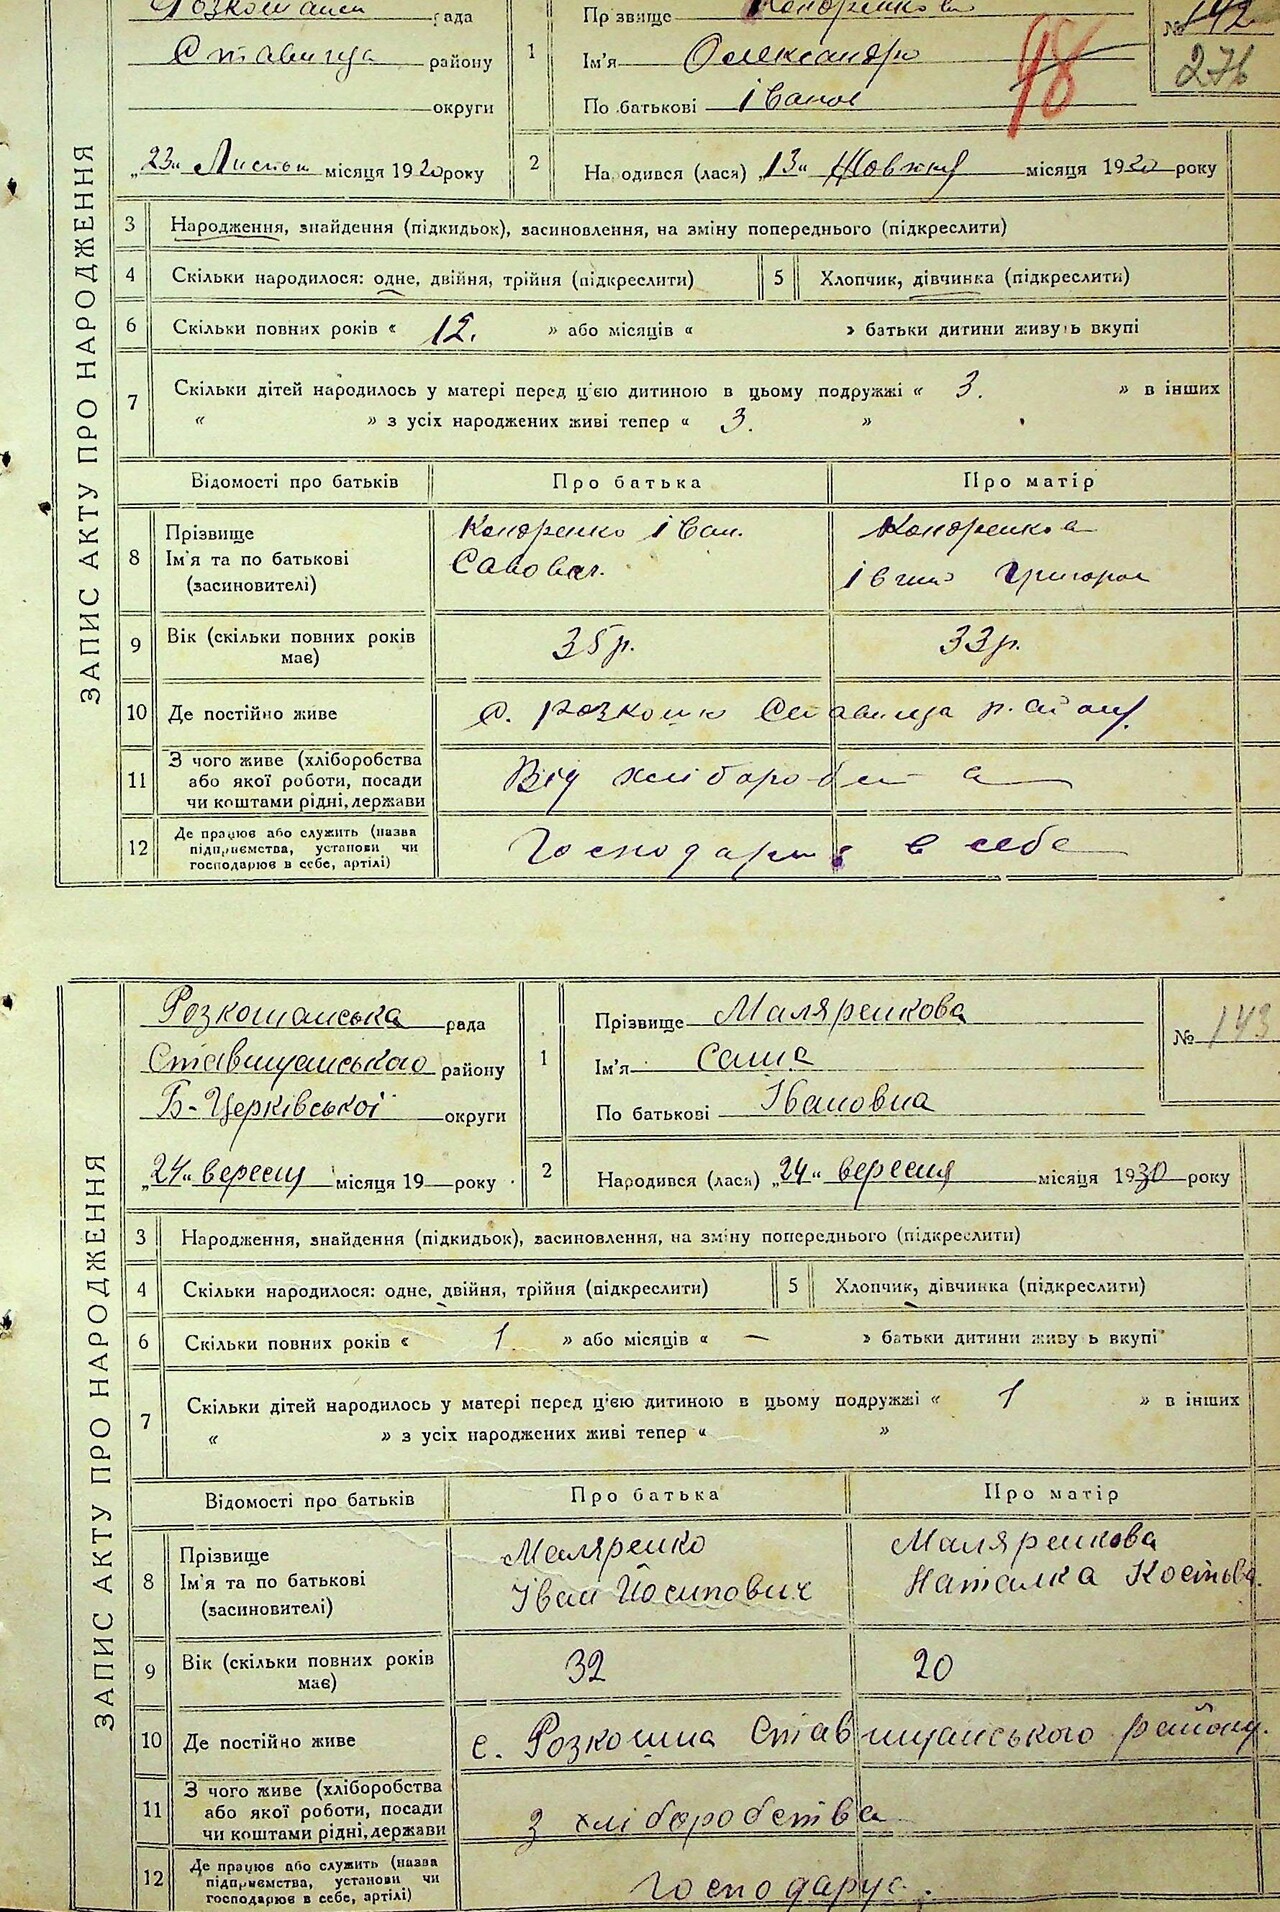 Розкошанськ рада
Ставище району
округи
„23" Листоп місяця 1920 року
1
Прізвище Кондренкова
Ім'я Олександра
По батькові Іванов
98
№ 142
276
2
Народився (лася) „13" Жовтня місяця 1920 року
ЗАПИС АКТУ ПРО НАРОДЖЕННЯ
3 Народження, знайдення (підкидьок), засиновлення, на зміну попереднього (підкреслити)
4 Скільки народилося: одне, двійня, трійня (підкреслити) 5 Хлопчик, дівчинка (підкреслити)
6 Скільки повних років « 12. » або місяців « » батьки дитини живуть вкупі
7 Скільки дітей народилось у матері перед ц'єю дитиною в цьому подружжі « 3. » в інших
« » з усіх народжених живі тепер « 3. »
Відомості про батьків Про батька Про матір
8 Прізвище
Ім'я та по батькові
(засиновителі)
Кондренко Іван.
Савович.
Кондренкова
Григоров
9 Вік (скільки повних років
має)
35 р. 33 р.
10 Де постійно живе с. Розкошн Ставище району
11 З чого живе (хліборобства
або якої роботи, посади
чи коштами рідні, держави
Від хліборобства
12 Де працює або служить (назва
підприємства, установи чи
господарює в себе, артілі)
Господарює в себе
Розкошанська рада
Ставищанського району
Б-Церківської округи
„24" вересня місяця 19 — року
1
Прізвище Маляренкова
Ім'я Саша
По батькові Івановна
№ 143
2
Народився (лася) „24" вересня місяця 1930 року
ЗАПИС АКТУ ПРО НАРОДЖЕННЯ
3 Народження, знайдення (підкидьок), засиновлення, на зміну попереднього (підкреслити)
4 Скільки народилося: одне, двійня, трійня (підкреслити) 5 Хлопчик, дівчинка (підкреслити)
6 Скільки повних років « 1 » або місяців « — » батьки дитини живуть вкупі
7 Скільки дітей народилось у матері перед ц'єю дитиною в цьому подружжі « 1 » в інших
« » з усіх народжених живі тепер « »
Відомості про батьків Про батька Про матір
8 Прізвище
Ім'я та по батькові
(засиновителі)
Маляренко
Іван Йосипович
Маляренкова
Наталка Костьов.
9 Вік (скільки повних років
має)
32 20
10 Де постійно живе с. Розкошна Ставищанського району.
11 З чого живе (хліборобства
або якої роботи, посади
чи коштами рідні, держави
З хліборобства
12 Де працює або служить (назва
підприємства, установи чи
господарює в себе, артілі)
Господарує.